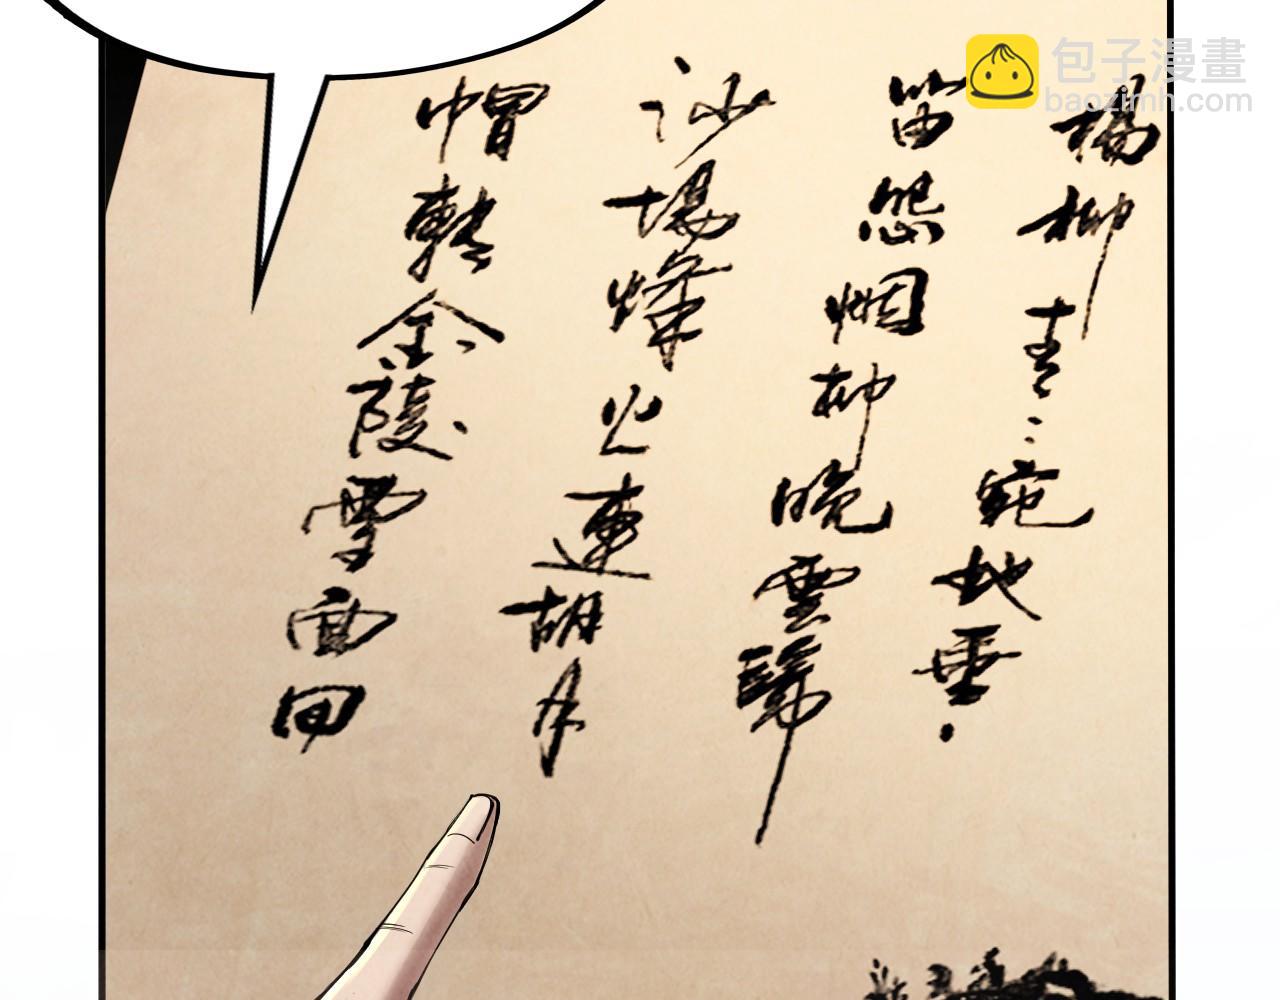 包子漫畫
baozimh.com
楊柳青〻宛地垂
笛怨烟柳晚雲歸
沙場烽火連胡月
帽轉金陵雪面回